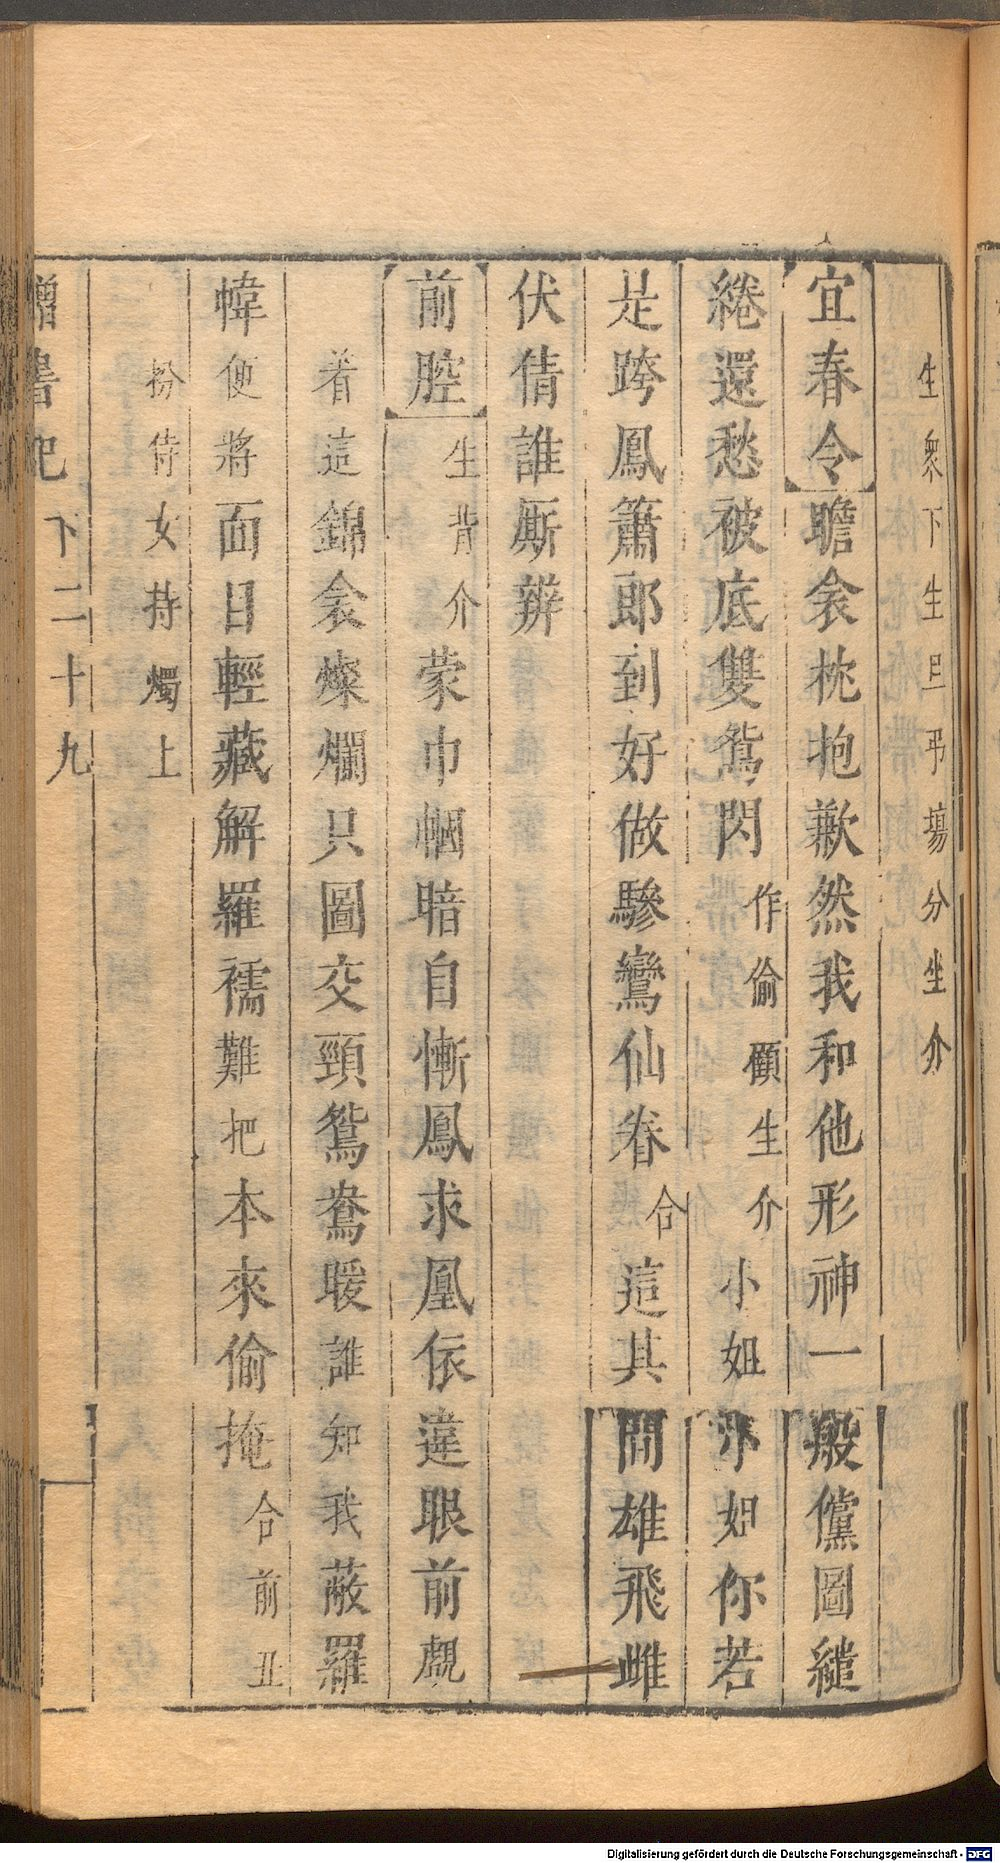 生衆下生旦弔塲分坐介
宜春令瞻衾枕抱歉然我和他形神一般儻圖繾
綣還愁被底雙鴛閃作偷顧生介小姐小姐你若
是跨鳳簫郎到好做驂鸞仙眷合這其間雄飛雌
伏倩誰厮辨
前腔生背介蒙巾幗暗自慚鳳求凰依違眼前覷
着這錦衾燦爛只圖交頸鴛鴦暖誰知我蔽羅
幃便將面目輕藏解羅襦難把本來偷掩合前丑
扮侍女持燭上
贈書記 下二十九
Digitalisierung gefördert durch die Deutsche Forschungsgemeinschaft - DFG